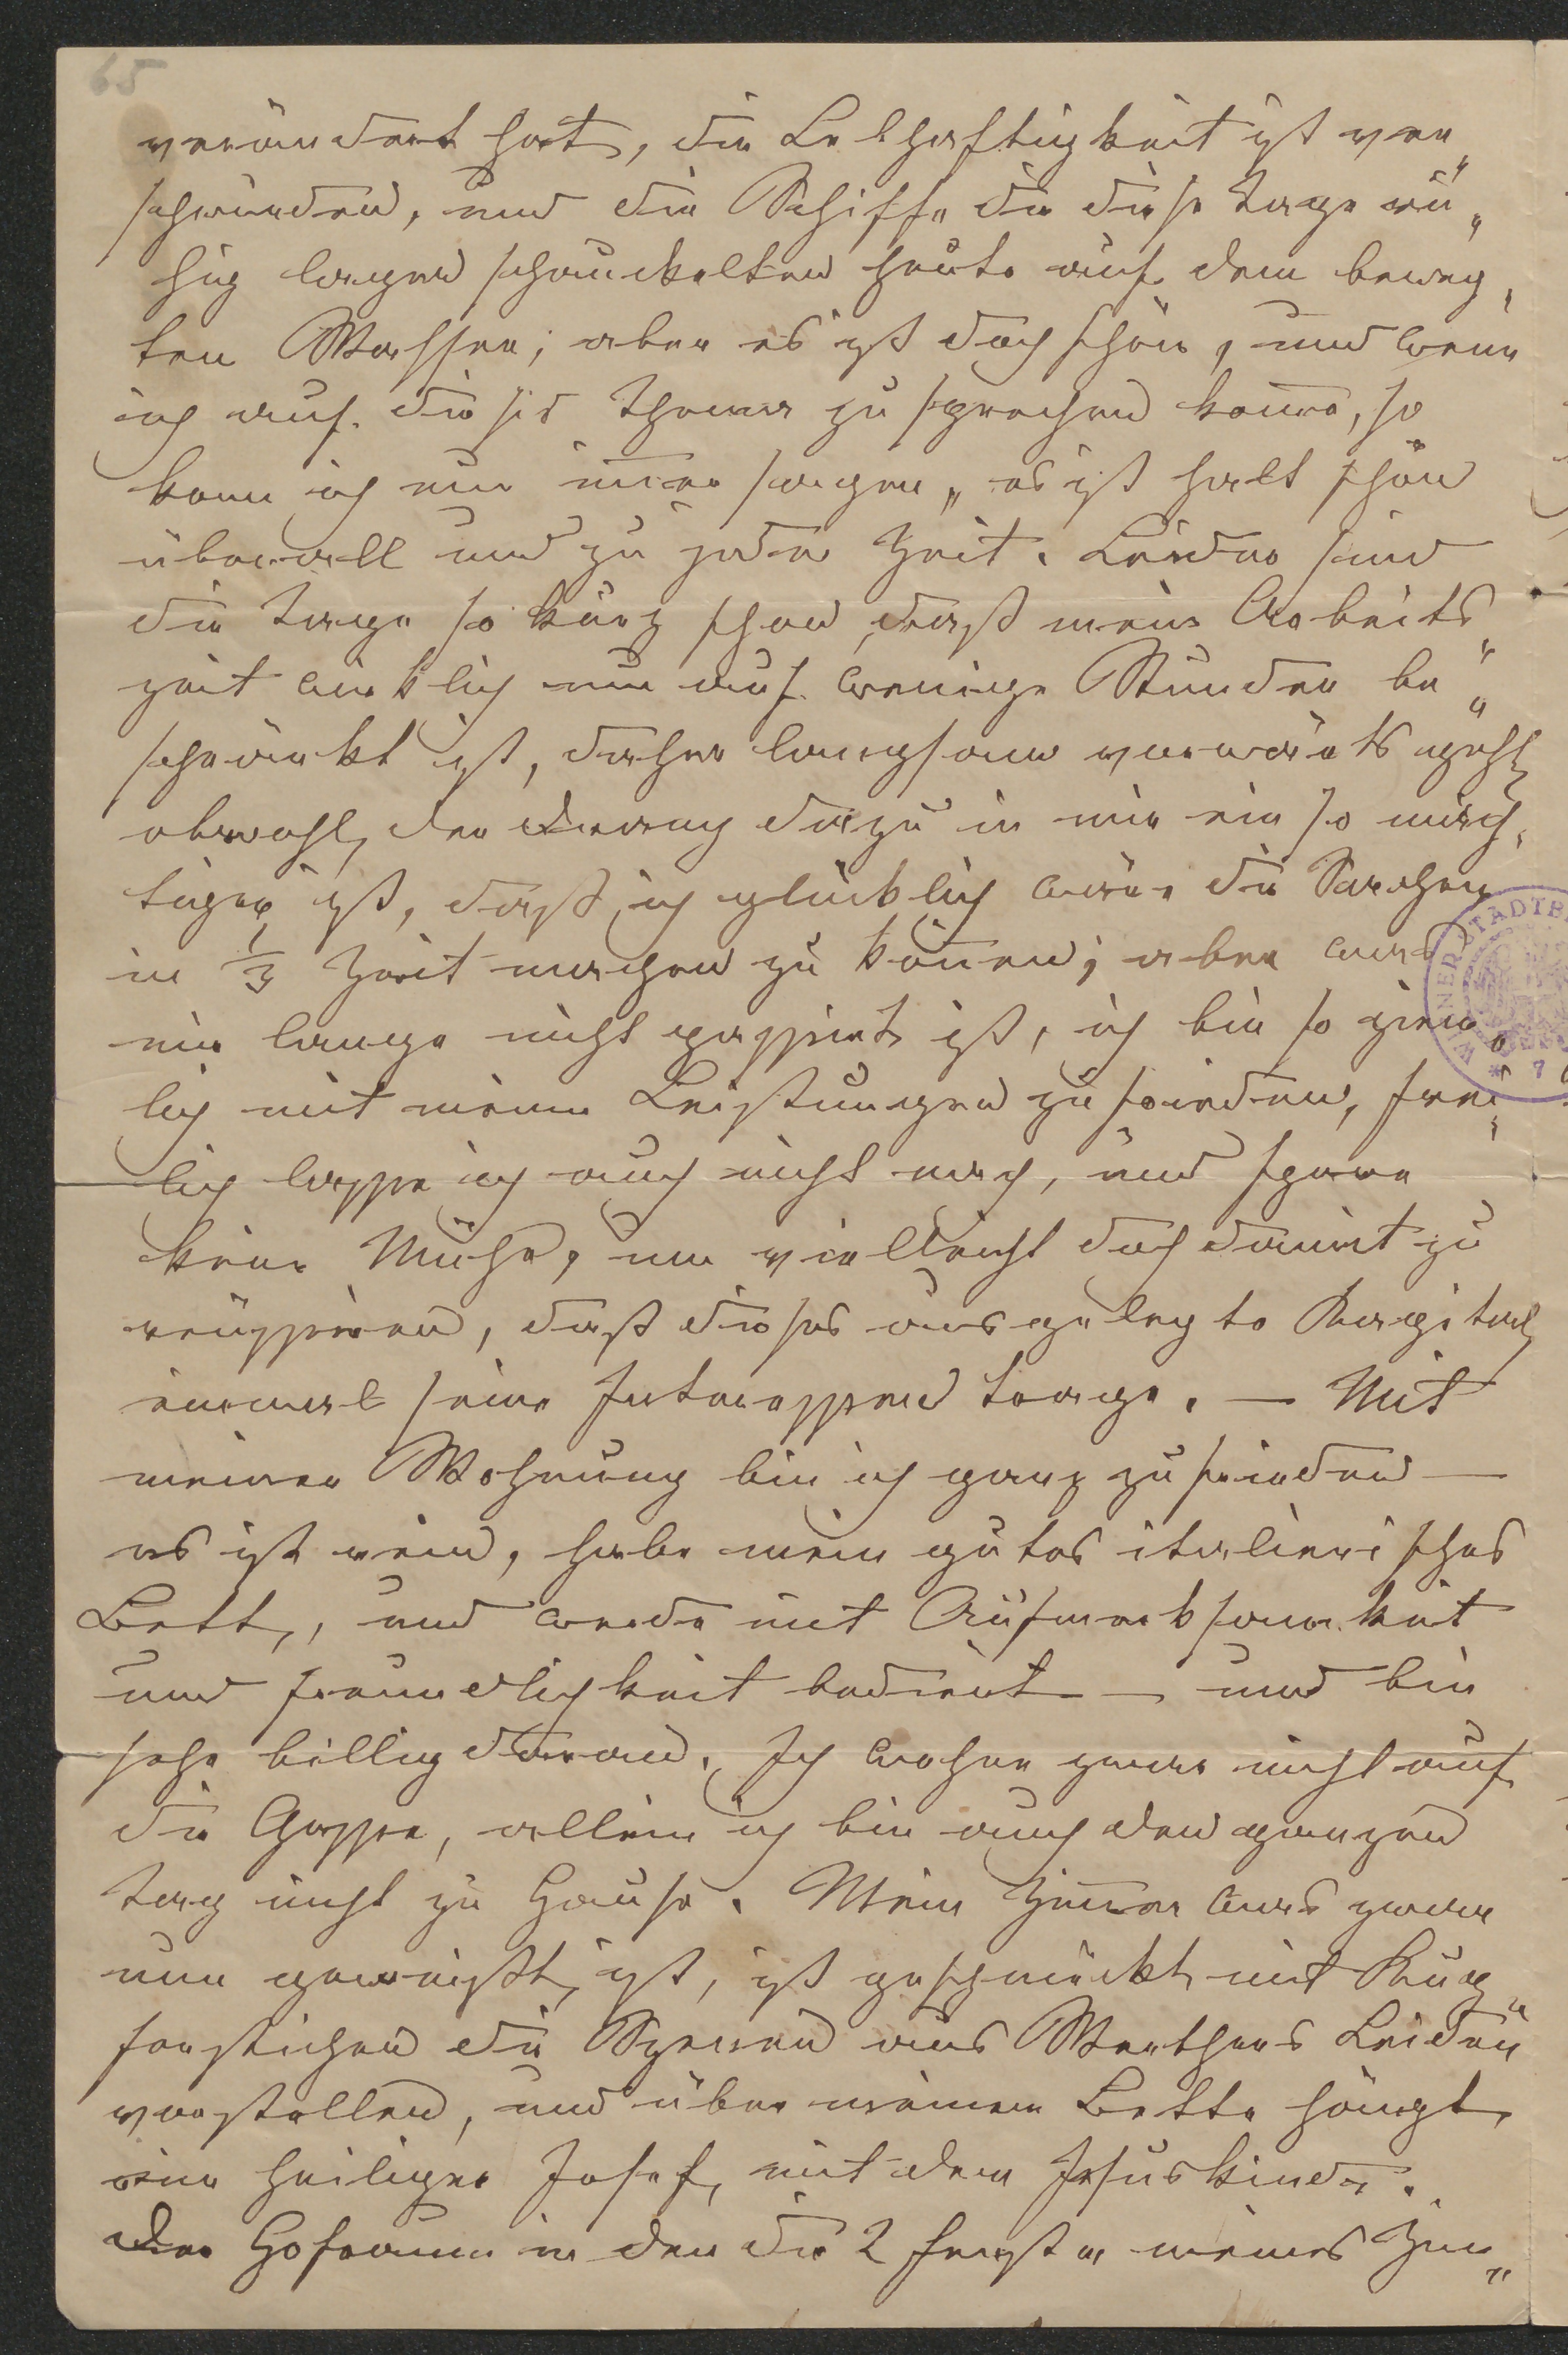 65
verändert hat, die Lebhaftigkeit ist ver„
schwunden, und die Schiffe die diese Tage ru„
hig lagen schauckelten heute auf dem beweg„
ten Wasser; aber es ist doch schön, und wenn
ich auf dieses Thema zu sprechen kom̅e, so
kann ich nur im̅er sagen „es ist halt schön
überall und zu jeder Zeit. Leider sind
die Tage so kurz schon, daß meine Arbeits„
zeit wirklich nur auf wenige Stunden be„
schränkt ist, daher langsam vorwärts geht,
obwohl der Drang dazu in mir ein so mäch„
tiger ist, daß ich glücklich wäre die Sachen
in 1/3 Zeit machen zu kön̅en; aber was
nie lange nicht passirt ist, ich bin so ziem„
lich mit meinen Leistungen zufrieden, frei„
lich lasse ich auch nicht nach, und spare
keine Mühe, um vielleicht doch damit zu
reüssieren, daß dieses ausgelegte Kapital
einmal seine Interessen trage. — Mit
meiner Wohnung bin ich ganz zufrieden —
es ist rein, habe mein gutes italienisches
Bett, und werde mit Aufmerksamkeit
und Freundlichkeit bedient — und bin
sehr billig daran. Ich wohne zwar nicht auf
die Gasse, allein ich bin auch den ganzen
Tag nicht zu Hause. Mein Zim̅er was zwar
nur geweißt ist, ist geschmückt mit Kup„
ferstichen die Szenen aus Werthers Leiden
vorstellen, und über meinem Bette hängt
ein heiliger Josef, mit dem Jesuskinde.
Der Hofraum in den die 2 Fenster meines Zim„
WIENER STADTB